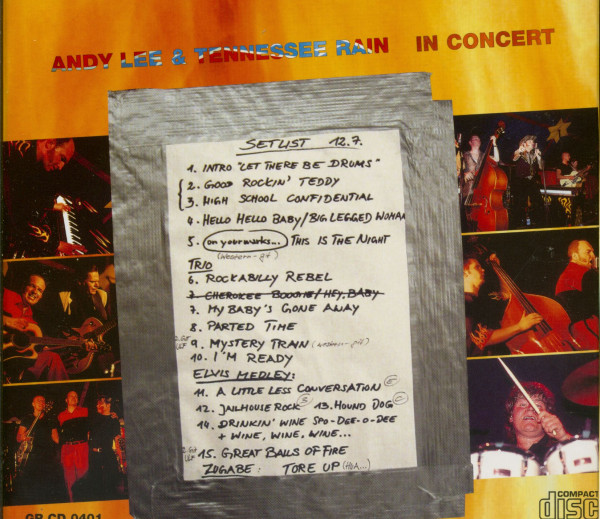 ANDY LEE & TENNESSEE RAIN IN CONCERT
SETLIST 12.7.
1. INTRO "LET THERE BE DRUMS"
2. GOOD ROCKIN' TEDDY
3. HIGH SCHOOL CONFIDENTIAL
4. HELLO HELLO BABY/BIG LEGGED WOMAN
5. on your marks... THIS IS THE NIGHT
(Western-gt)
TRIO
6. ROCKABILLY REBEL
7. CHEROKEE BOOGIE/HEY, BABY
7. MY BABY'S GONE AWAY
8. PARTED TIME
9. MYSTERY TRAIN (western-gt)
10. I'M READY
ELVIS MEDLEY:
11. A LITTLE LESS CONVERSATION E
12. JAILHOUSE ROCK 13. HOUND DOG C
14. DRINKIN' WINE SPO-DEE-O-DEE
+ WINE, WINE, WINE...
15. GREAT BALLS OF FIRE
ZUGABE: TORE UP
GR CD 0401
COMPACT
disc